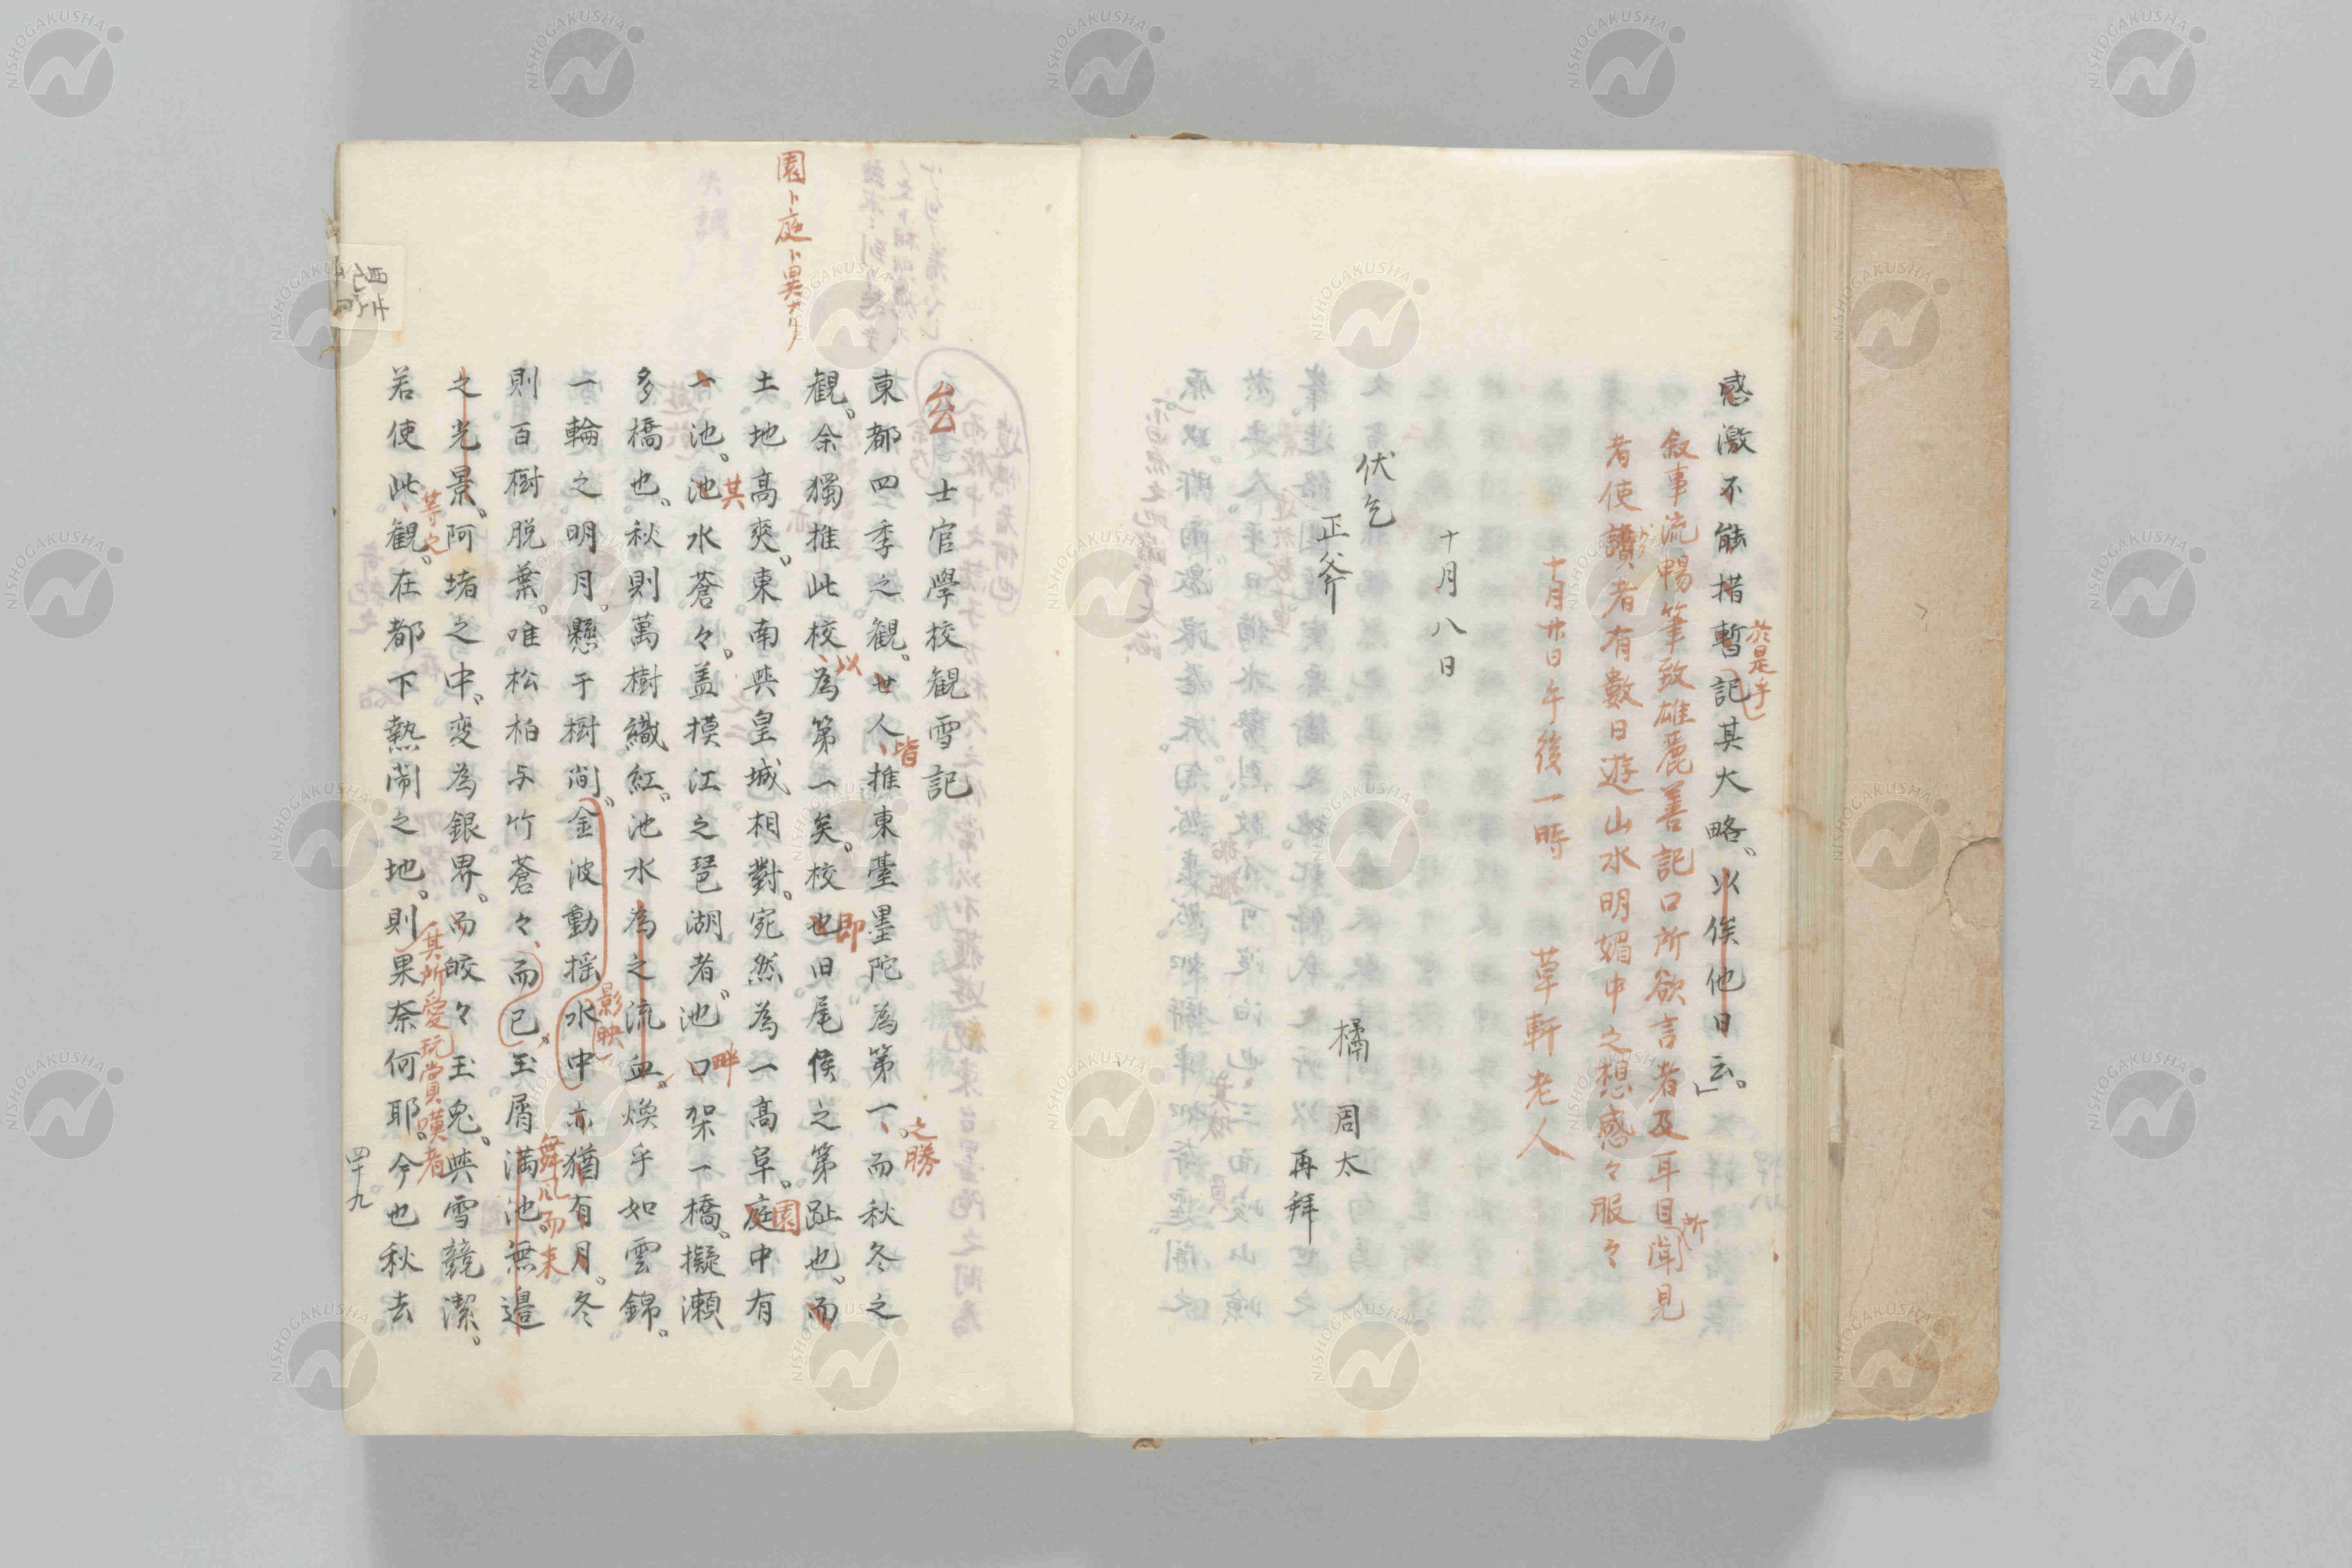 感激不能措暫記其大略。以俟他日云。」
於是乎
叙事流暢筆致雄麗善記口所欲言者及耳目聞見
所
者使讀者有數日遊山水明媚中之想感々服々
十月廿日午後一時 草軒老人
十月八日
伏乞
正斧
橘 周太
再拜
園ト庭ト異ナリ
士官學校観雪記
東都四季之観。世人推東臺墨陀為第一。而秋冬之
皆
之勝
観。余獨推此校為第一矣。校也旧尾侯之第趾也。而
以
即
土地高爽。東南與皇城相對。宛然為一高阜。庭中有
園
一池。池水蒼々。盖摸江之琶湖者。池口架一橋。擬瀬
其
畔
多橋也。秋則萬樹織紅。池水為之流血。煥乎如雲錦。
一輪之明月。懸于樹間。金波動揺水中亦猶有月。冬
影映
則百樹脱葉。唯松柏与竹蒼々而已。玉屑満池無邉
舞風而来
之光景。阿堵之中。変為銀界。而皎々玉兎。與雪競潔。
若使此観。在都下熱閙之地。則果奈何耶。今也秋去
等之
其所愛玩賞嘆者
四十九
NISHOGAKUSHA